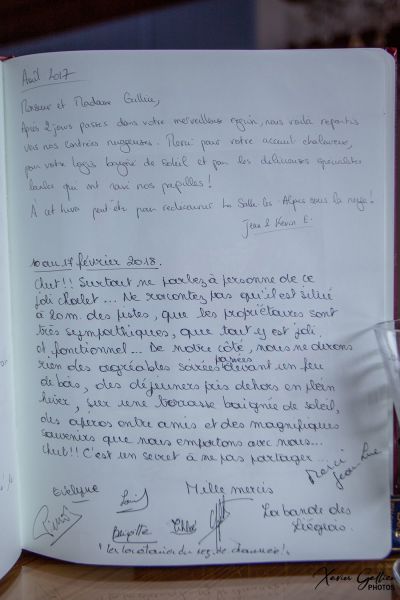 Août 2017
Monsieur et Madame Gallier,
Après 2 jours passés dans votre merveilleuse région, nous voilà repartis
vers nos contrées nuageuses. Merci pour votre accueil chaleureux,
pour votre logis baigné de soleil et pour les délicieuses spécialités
locales qui ont ravi nos papilles !
À cet hiver peut-être pour redécouvrir La Salle-les-Alpes sous la neige !
Jean & Kevin E.
10 au 17 février 2018.
Chut!! Surtout ne parlez à personne de ce
joli chalet... Ne racontez pas qu'il est situé
à 20 m. des pistes, que les propriétaires sont
très sympathiques, que tout y est joli
et fonctionnel... De notre côté, nous ne dirons
rien des agréables soirées passées devant un feu
de bois, des déjeuners pris dehors en plein
hiver, sur une terrasse baignée de soleil,
des apéros entre amis et des magnifiques
souvenirs que nous emportons avec nous...
Chut!! C'est un secret à ne pas partager...
Merci
Jean-Luc
Evelyne
Mille mercis
La bande des
Liégeois.
Brigitte
Chloé
"Les locataires du rez de chaussée"!
Xavier Gallier
PHOTOS